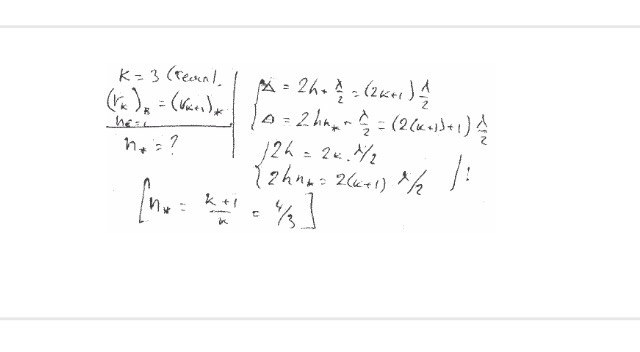 K = 3 (темн).
(r_k)_в = (r_{k+1})_*
n_в = 1
n_* = ?
Δ = 2h + λ/2 = (2k+1) λ/2
Δ = 2hn_* + λ/2 = (2(k+1)+1) λ/2
2h = 2k · λ/2
2hn_* = 2(k+1) λ/2 !
[n_* = (k+1)/k = 4/3]